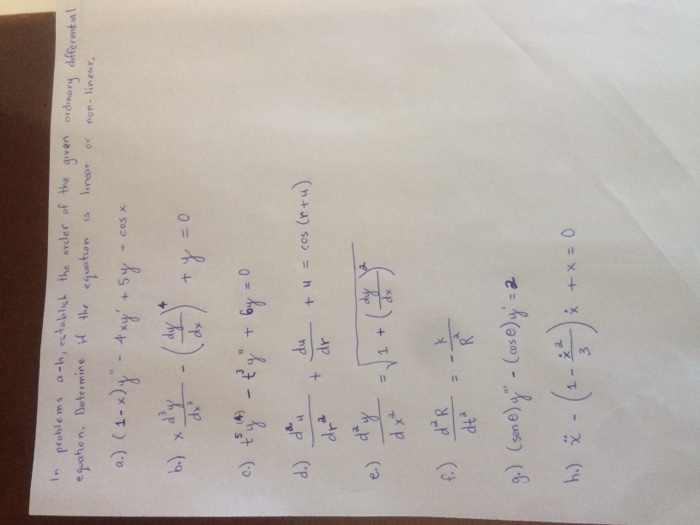 In problems a-h, establish the order of the given ordinary differential
equation. Determine if the equation is linear or non-linear.
a.) (1-x)y'' - 4xy' + 5y = cos x
b.) x d³y/dx³ - (dy/dx)⁴ + y = 0
c.) t⁵y⁽⁴⁾ - t³y'' + 6y = 0
d.) d²u/dr² + du/dr + u = cos(r+u)
e.) d²y/dx² = √(1 + (dy/dx)²)
f.) d²R/dt² = - k/R²
g.) (sen θ)y''' - (cos θ)y' = 2
h.) ẍ - (1 - ẋ²/3)ẋ + x = 0